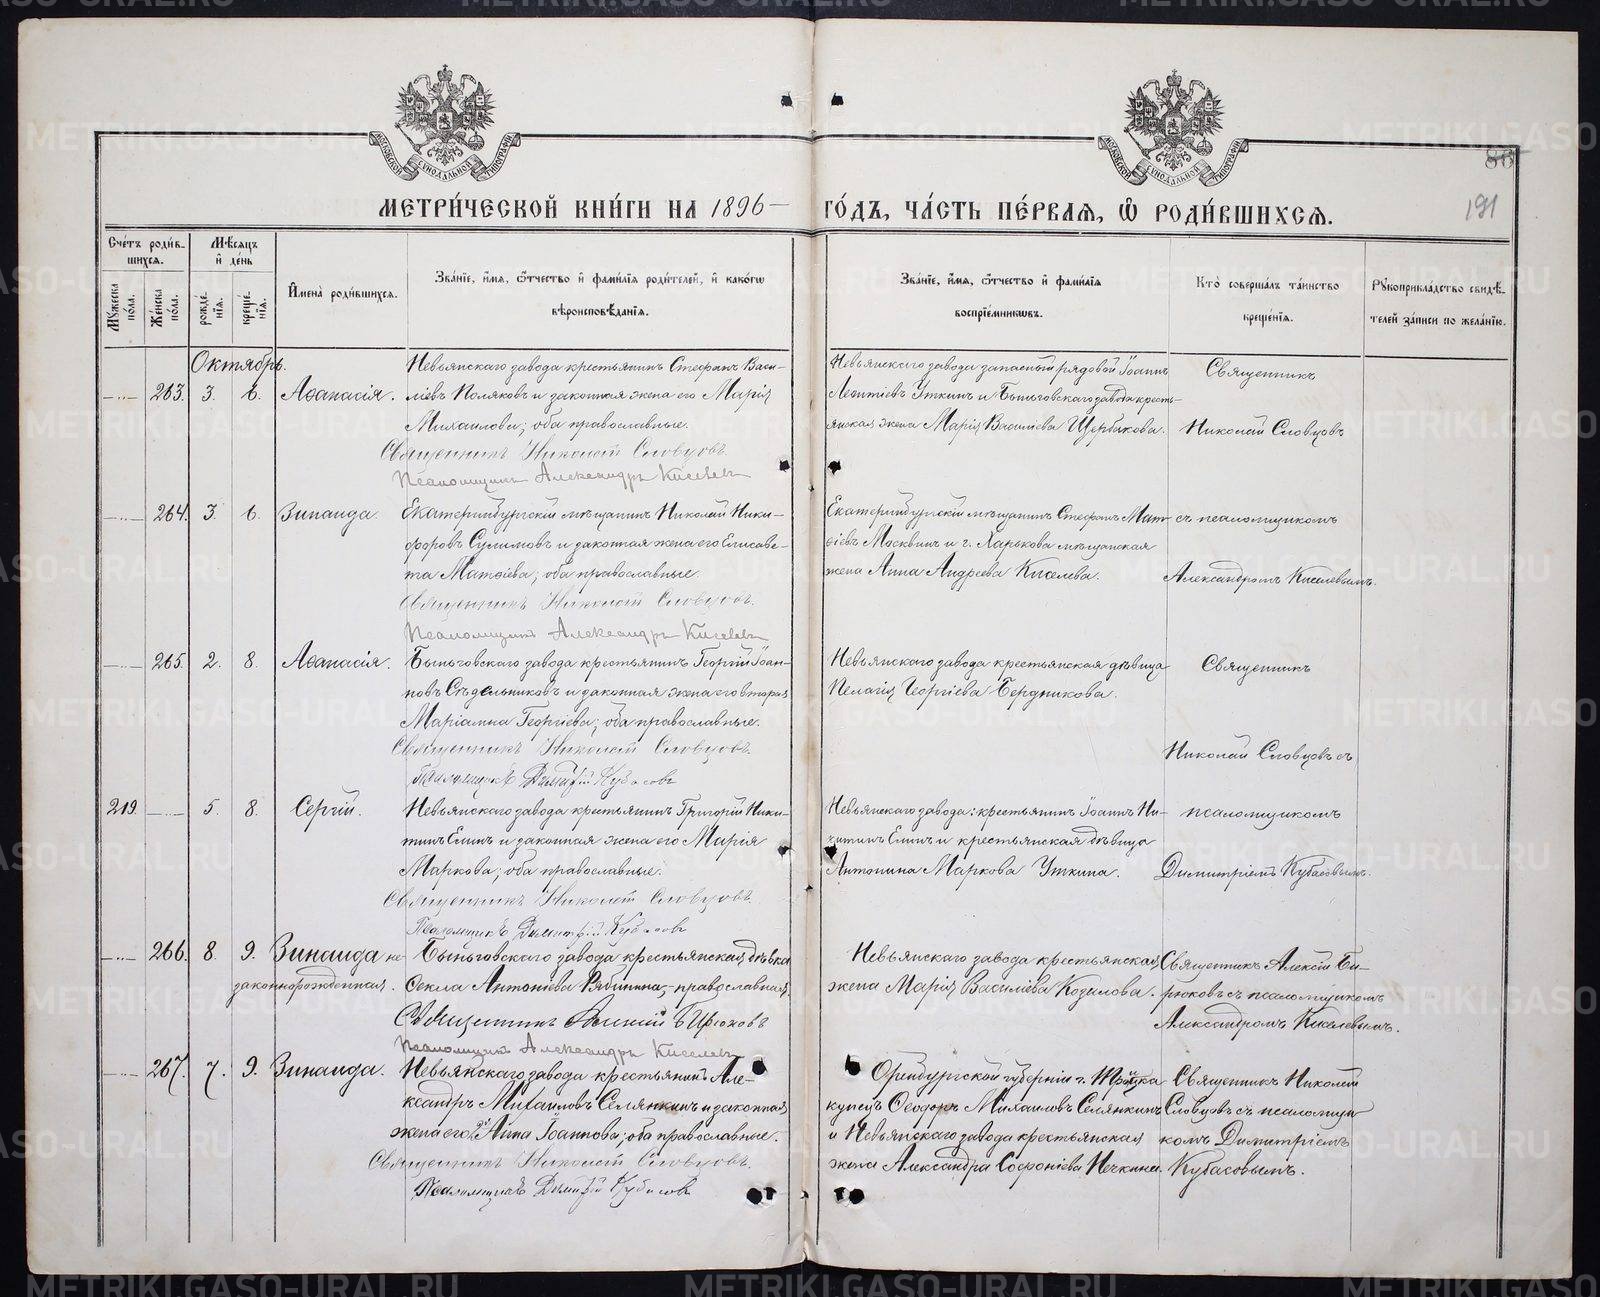 МОСКОВСКОЙ СѴНОДАЛЬНОЙ ТИПОГРАФІИ
МОСКОВСКОЙ СѴНОДАЛЬНОЙ ТИПОГРАФІИ
86
191
МЕТРИ́ЧЕСКОЙ КНИ́ГИ НА 1896 —
ГО́ДЪ, ЧА́СТЬ ПЕ́РВАѦ, Ѽ РОДИ́ВШИХСѦ.
Сче́тъ роди́в-
шихсѧ.
Мѣ́сѧцъ
и҆ де́нь
Мꙋ́жеска по́ла.
Же́нска по́ла.
рожде́-
нїѧ.
креще́-
нїѧ.
И҆мена̀ роди́вшихсѧ.
Зва́нїе, и҆́мѧ, ѻ҆́тчество и҆ фами́лїѧ роди́телей, и҆ како́гѡ
вѣроисповѣ́данїѧ.
Зва́нїе, и҆́мѧ, ѻ҆́тчество и҆ фами́лїѧ
воспрїе́мникѡвъ.
Кто̀ соверша́лъ та́инство
креще́нїѧ.
Рꙋкоприкла́дство свидѣ́-
телей за́писи по жела́нїю.
Октябрь.
263. 3. 6. Аѳанасія.
Невьянскаго завода крестьянинъ Стефанъ Васи-
ліевъ Поляковъ и законная жена его Марія
Михаилова; оба православные.
Священникъ Николай Словцовъ.
Псаломщикъ Александръ Киселевъ
Невьянскаго завода запасный рядовой Іоаннъ
Леонтіевъ Уткинъ и Быньговскаго завода кресть-
янская жена Марія Василіева Щербакова.
Священникъ
Николай Словцовъ
264. 3. 6. Зинаида.
Екатеринбургскій мѣщанинъ Николай Ники-
форовъ Сулимовъ и законная жена его Елисаве-
та Матѳіева; оба православные.
Священникъ Николай Словцовъ.
Псаломщикъ Александръ Киселевъ
Екатеринбургскій мѣщанинъ Стефанъ Мат-
ѳіевъ Москвинъ и г. Харькова мѣщанская
жена Анна Андреева Киселева.
съ псаломщикомъ
Александромъ Киселевымъ.
265. 2. 8. Аѳанасія.
Быньговскаго завода крестьянинъ Георгій Іоан-
новъ Сѣдельниковъ и законная жена его вторая
Маріамна Георгіева; оба православные.
Священникъ Николай Словцовъ.
Псаломщикъ Димитрій Кубасовъ
Невьянскаго завода крестьянская дѣвица
Пелагія Георгіева Бердникова.
Священникъ
Николай Словцовъ съ
219. 5. 8. Сергій.
Невьянскаго завода крестьянинъ Григорій Ники-
тинъ Елинъ и законная жена его Марія
Маркова; оба православные.
Священникъ Николай Словцовъ.
Псаломщикъ Димитрій Кубасовъ
Невьянскаго завода: крестьянинъ Іоаннъ Ни-
китинъ Елинъ и крестьянская дѣвица
Антонина Маркова Уткина.
псаломщикомъ
Димитріемъ Кубасовымъ.
266. 8. 9. Зинаида не-
законнорожденная.
Быньговскаго завода крестьянская дѣвка
Ѳекла Антоніева Рябинина, - православная.
Священникъ Алексій Бирюковъ
Псаломщикъ Александръ Киселевъ
Невьянскаго завода крестьянская
жена Марія Василіева Козилова.
Священникъ Алексій Би-
рюковъ съ псаломщикомъ
Александромъ Киселевымъ.
267. 7. 9. Зинаида.
Невьянскаго завода крестьянинъ Але-
ксандръ Михаиловъ Селянкинъ и законная
жена его Анна Іоаннова; оба православные.
Священникъ Николай Словцовъ.
Псаломщикъ Димитрій Кубасовъ
Оренбургской губерніи г. Троицка
купецъ Ѳеодоръ Михаиловъ Селянкинъ
и Невьянскаго завода крестьянская
жена Александра Софоніева Нечкина.
Священникъ Николай
Словцовъ съ псаломщи-
комъ Димитріемъ
Кубасовымъ.
METRIKI.GASO-URAL.RU